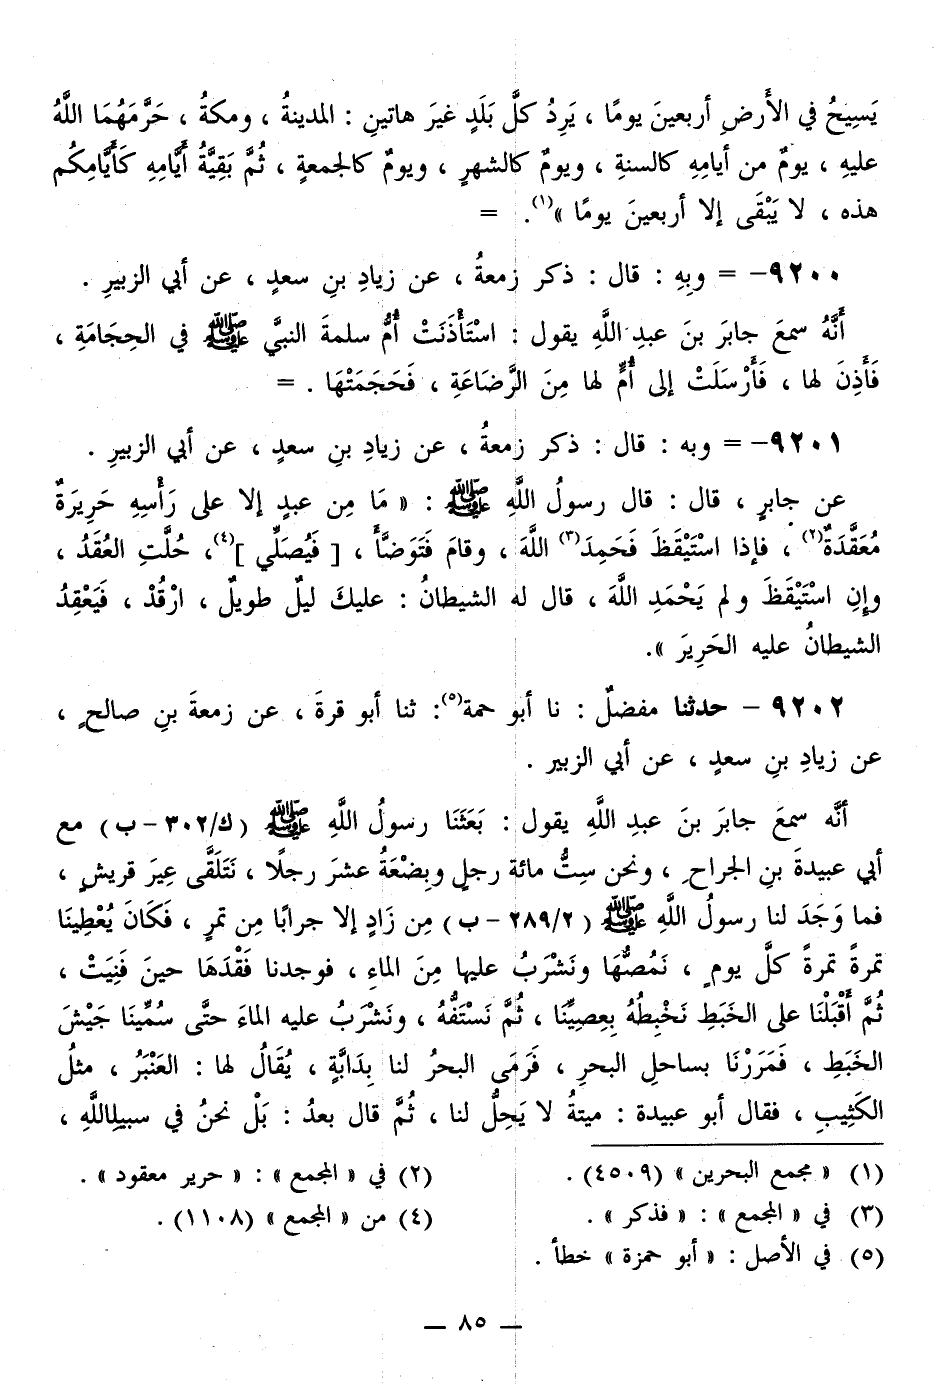 يَسِيحُ في الأَرضِ أربعينَ يومًا ، يَرِدُ كلَّ بَلَدٍ غيرَ هاتينِ : المدينةُ ، ومكةُ ، حَرَّمَهُمَا اللَّهُ
عليهِ ، يومٌ من أيامِهِ كالسنةِ ، ويومٌ كالشهرِ ، ويومٌ كالجمعةِ ، ثُمَّ بَقِيَّةُ أَيَّامِهِ كَأَيَّامِكُم
هذه ، لا يَبْقَى إلا أربعينَ يومًا »(١). =
٩٢٠٠- = وبِهِ : قال : ذكر زمعةُ ، عن زيادِ بنِ سعدٍ ، عن أبي الزبيرِ .
أَنَّهُ سمعَ جابرَ بنَ عبدِ اللَّهِ يقول : اسْتَأْذَنَتْ أُمُّ سلمةَ النبيَّ ﷺ في الحِجَامَةِ ،
فَأَذِنَ لها ، فَأَرْسَلَتْ إلى أُمٍّ لها مِنَ الرَّضَاعَةِ ، فَحَجَمَتْهَا . =
٩٢٠١- = وبه : قال : ذكر زمعةُ ، عن زيادِ بنِ سعدٍ ، عن أبي الزبيرِ .
عن جابرٍ ، قال : قال رسولُ اللَّهِ ﷺ : « مَا مِن عبدٍ إلا على رَأْسِهِ حَرِيرَةٌ
مُعَقَّدَةٌ(٢) ، فإذا اسْتَيْقَظَ فَحَمِدَ(٣) اللَّهَ ، وقامَ فَتَوَضَّأَ ، [ فَيُصَلِّي ](٤)، حُلَّتِ العُقَدُ ،
وإِنِ اسْتَيْقَظَ ولم يَحْمَدِ اللَّهَ ، قال له الشيطانُ : عليكَ ليلٌ طويلٌ ، ارْقُدْ ، فَيَعْقِدُ
الشيطانُ عليه الحَرِيرَ ».
٩٢٠٢ - حدثنا مفضلٌ : نا أبو حمة(٥): ثنا أبو قرةَ ، عن زمعةَ بنِ صالحٍ ،
عن زيادِ بنِ سعدٍ ، عن أبي الزبير .
أنَّه سمعَ جابرَ بنَ عبدِ اللَّهِ يقول : بَعَثَنَا رسولُ اللَّهِ ﷺ (ك/٣٠٢- ب) مع
أبي عبيدةَ بنِ الجراحِ ، ونحن ستُّ مائة رجلٍ وبِضْعَةُ عشرَ رجلًا ، نَتَلَقَّى عِيرَ قريشٍ ،
فما وَجَدَ لنا رسولُ اللَّهِ ﷺ (٢٨٩/٢ - ب) مِن زَادٍ إلا جرابًا مِن تمرٍ ، فَكَانَ يُعْطِينَا
تمرةً تمرةً كلَّ يومٍ ، نَمُصُّهَا ونَشْرَبُ عليها مِنَ الماءِ ، فوجدنا فَقْدَهَا حينَ فَنِيَتْ ،
ثُمَّ أَقْبَلْنَا على الخَبَطِ نَخْبِطُهُ بِعِصِيِّنَا ، ثُمَّ نَسْتَفُّهُ ، ونَشْرَبُ عليه الماءَ حتَّى سُمِّينَا جَيْشَ
الخَبَطِ ، فَمَرَرْنَا بساحلِ البحرِ ، فَرَمَى البحرُ لنا بِدَابَّةٍ ، يُقَالُ لها : العَنْبَرُ ، مثلُ
الكَثِيبِ ، فقال أبو عبيدة : ميتةُ لا يَحِلُّ لنا ، ثُمَّ قال بعدُ : بَلْ نحنُ في سبيلِاللَّهِ ،
(١) « مجمع البحرين » (٤٥٠٩) . (٢) في « المجمع » : « حرير معقود » .
(٣) في « المجمع » : « فذكر » . (٤) من « المجمع » (١١٠٨).
(٥) في الأصل : « أبو حمزة » خطأ .
— ٨٥ —